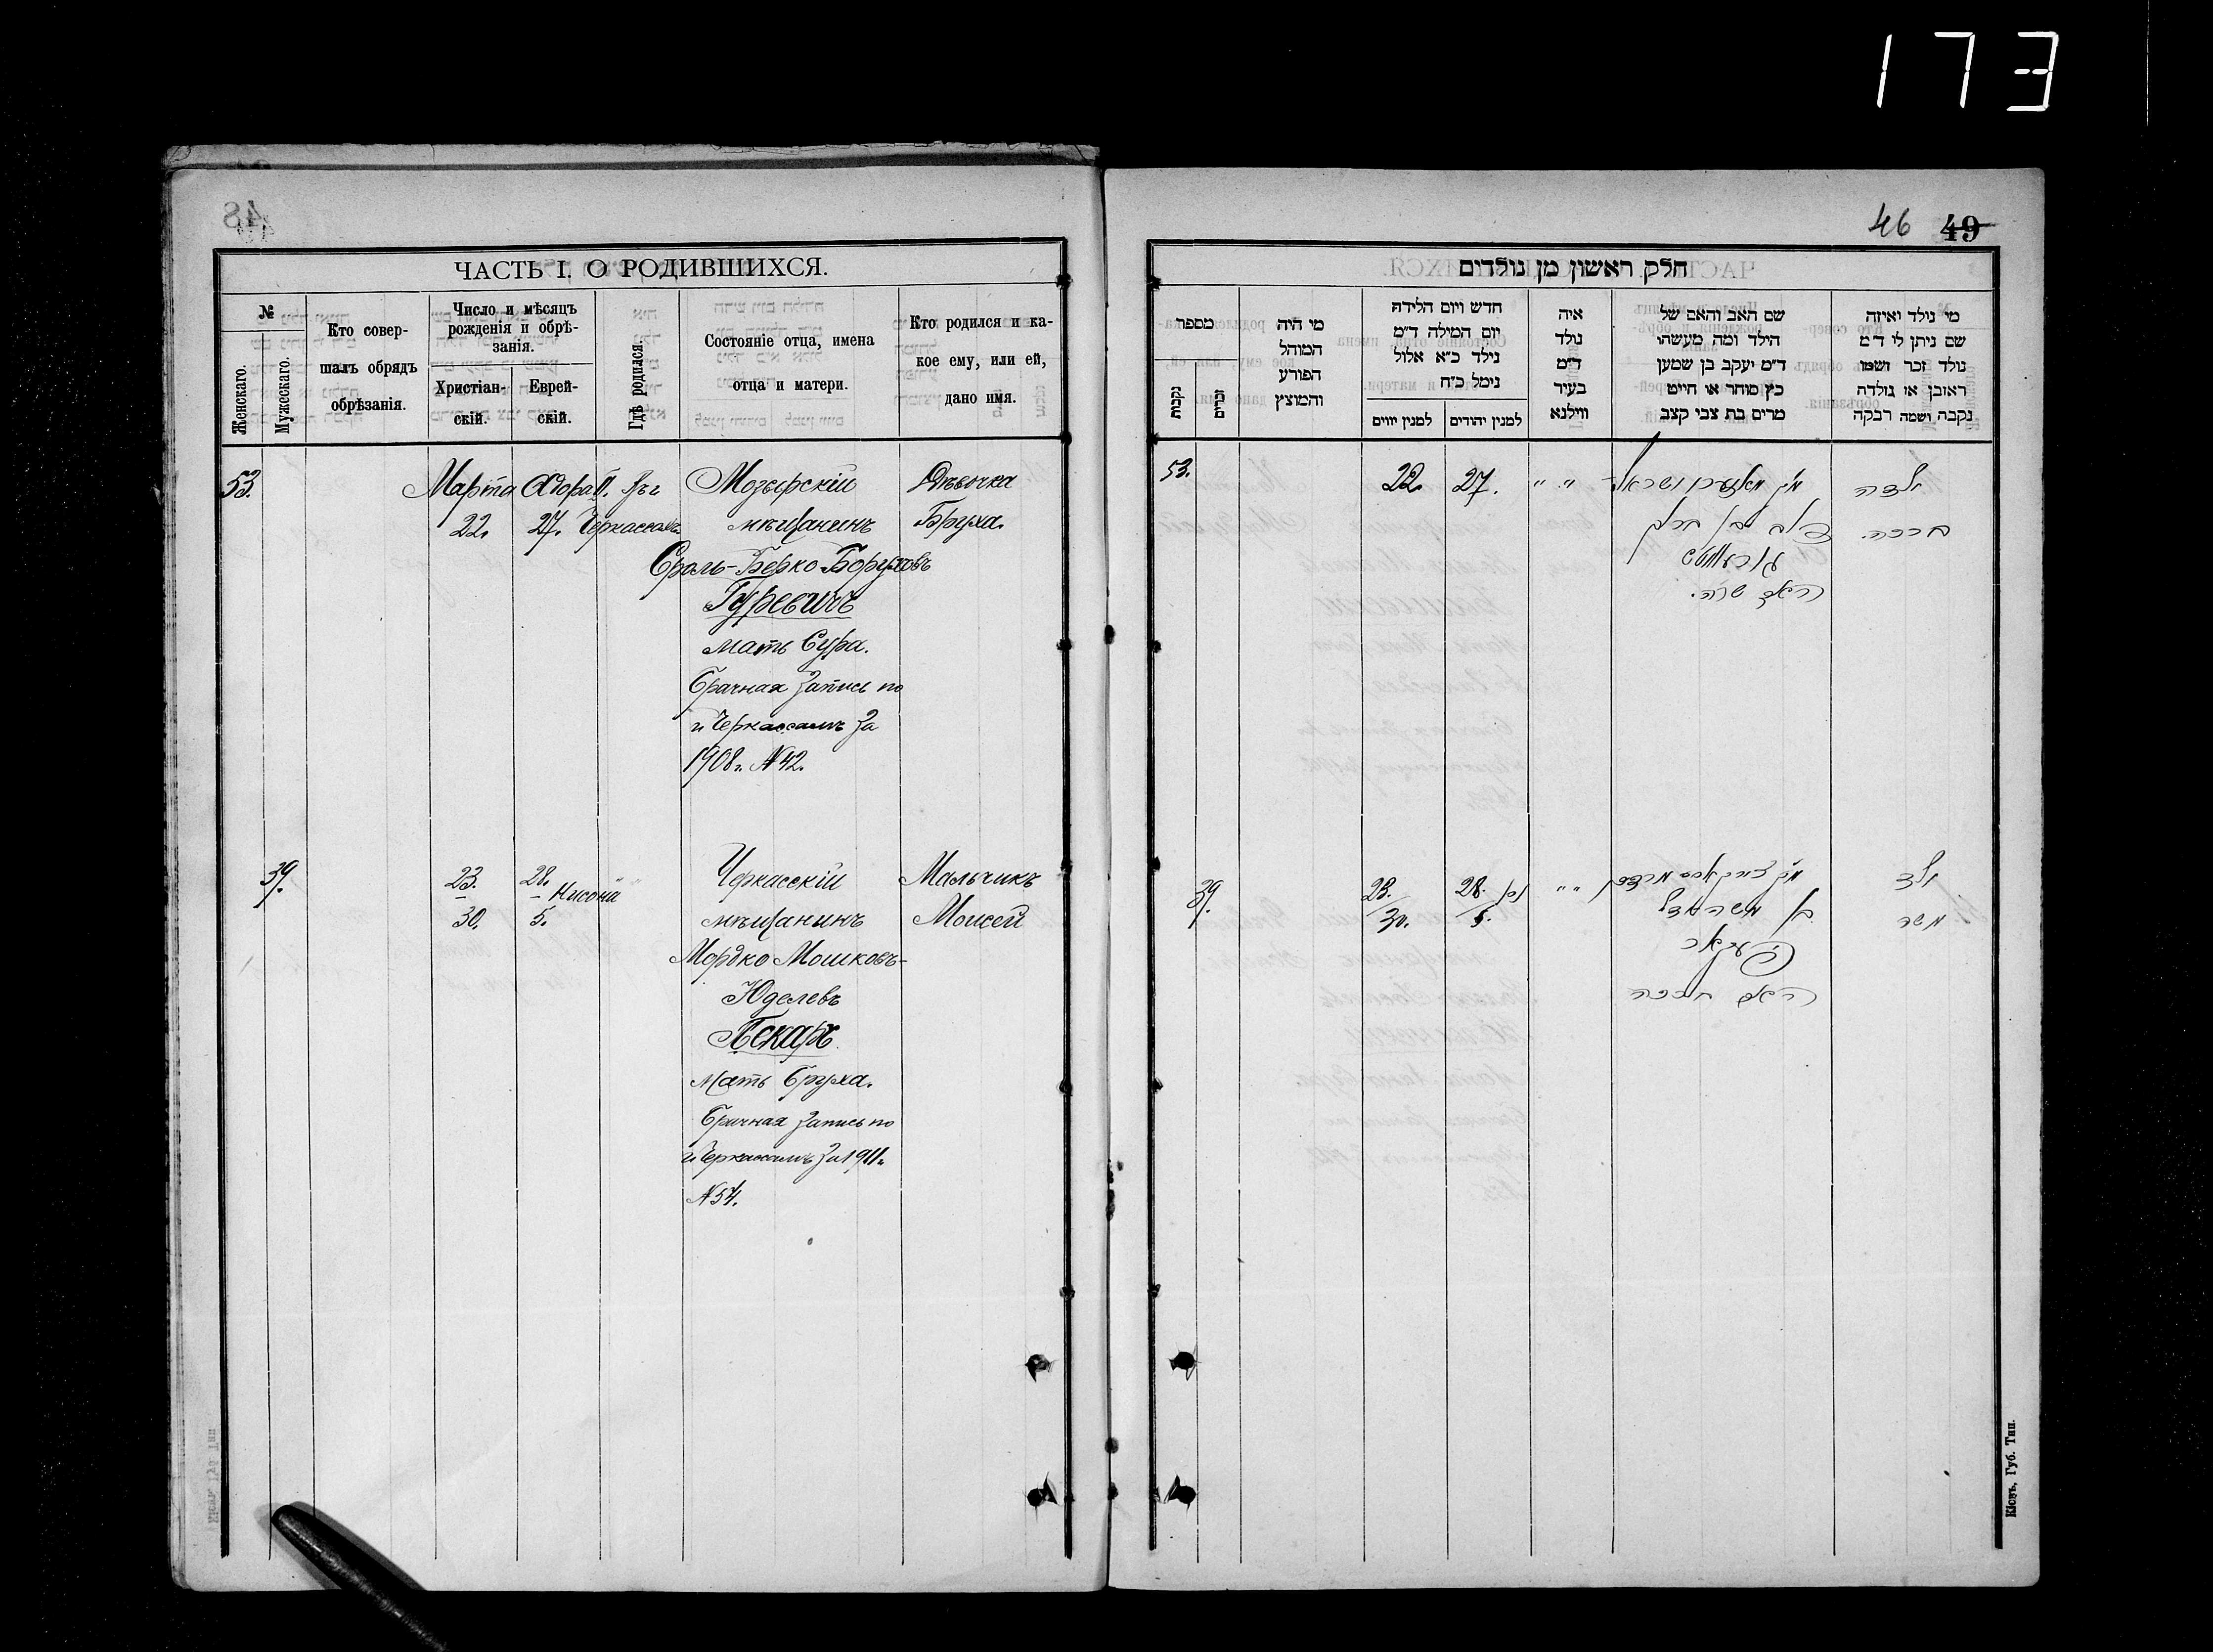 173
46 49
ЧАСТЬ I. О РОДИВШИХСЯ.
№
Женскаго.
Мужескаго.
Кто совер-
шалъ обрядъ
обрѣзанія.
Число и мѣсяцъ
рожденія и обрѣ-
занія.
Христіан-
скій.
Еврей-
скій.
Гдѣ родился.
Состояніе отца, имена
отца и матери.
Кто родился и ка-
кое ему, или ей,
дано имя.
53.
Марта
22.
Адора II.
27.
Черкассахъ
Мозырскій
мѣщанинъ
Сроль-Берко Боруховъ
Гуревичъ
мать Сура.
Брачная запись по
г. Черкассамъ за
1908 г. № 42.
Дѣвочка
Бруха.
39.
23.
30.
28.
5.
Нисона
Черкасскій
мѣщанинъ
Мордко Мошковъ-
Юделевъ
Пекарь
Мать Бруха.
Брачная запись по
г. Черкассамъ за 1911 г.
№ 54.
Мальчикъ
Моисей
חלק ראשון מן נולדים
מי נולד יאיזה
שם ניתן לי ד״מ
נולד זכר ושמו
ראובן או נולדה
נקבה ושמה רבקה
שם האב והאם של
הילד ומה מעשהו
ד״מ יעקב בן שמען
כץ סוחר או חייט
מרים בת צבי קצב
איה
נולד
ד״מ
בעיר
ווילנא
חדש ויום הלידה
יום המילה ד״מ
נילד כ״א אלול
נימל כ״ח
למנין יהודים
למנין יווים
מי היה
המוהל
הפורע
והמוצץ
מספר
זכרים
נקבות
53.
22.
27.
" "
ילדה
ברכה.
האם שרה.
39.
23.
30.
28.
5.
" "
ילד
משה
האם ברכה
Кіевъ, Губ. Тип.